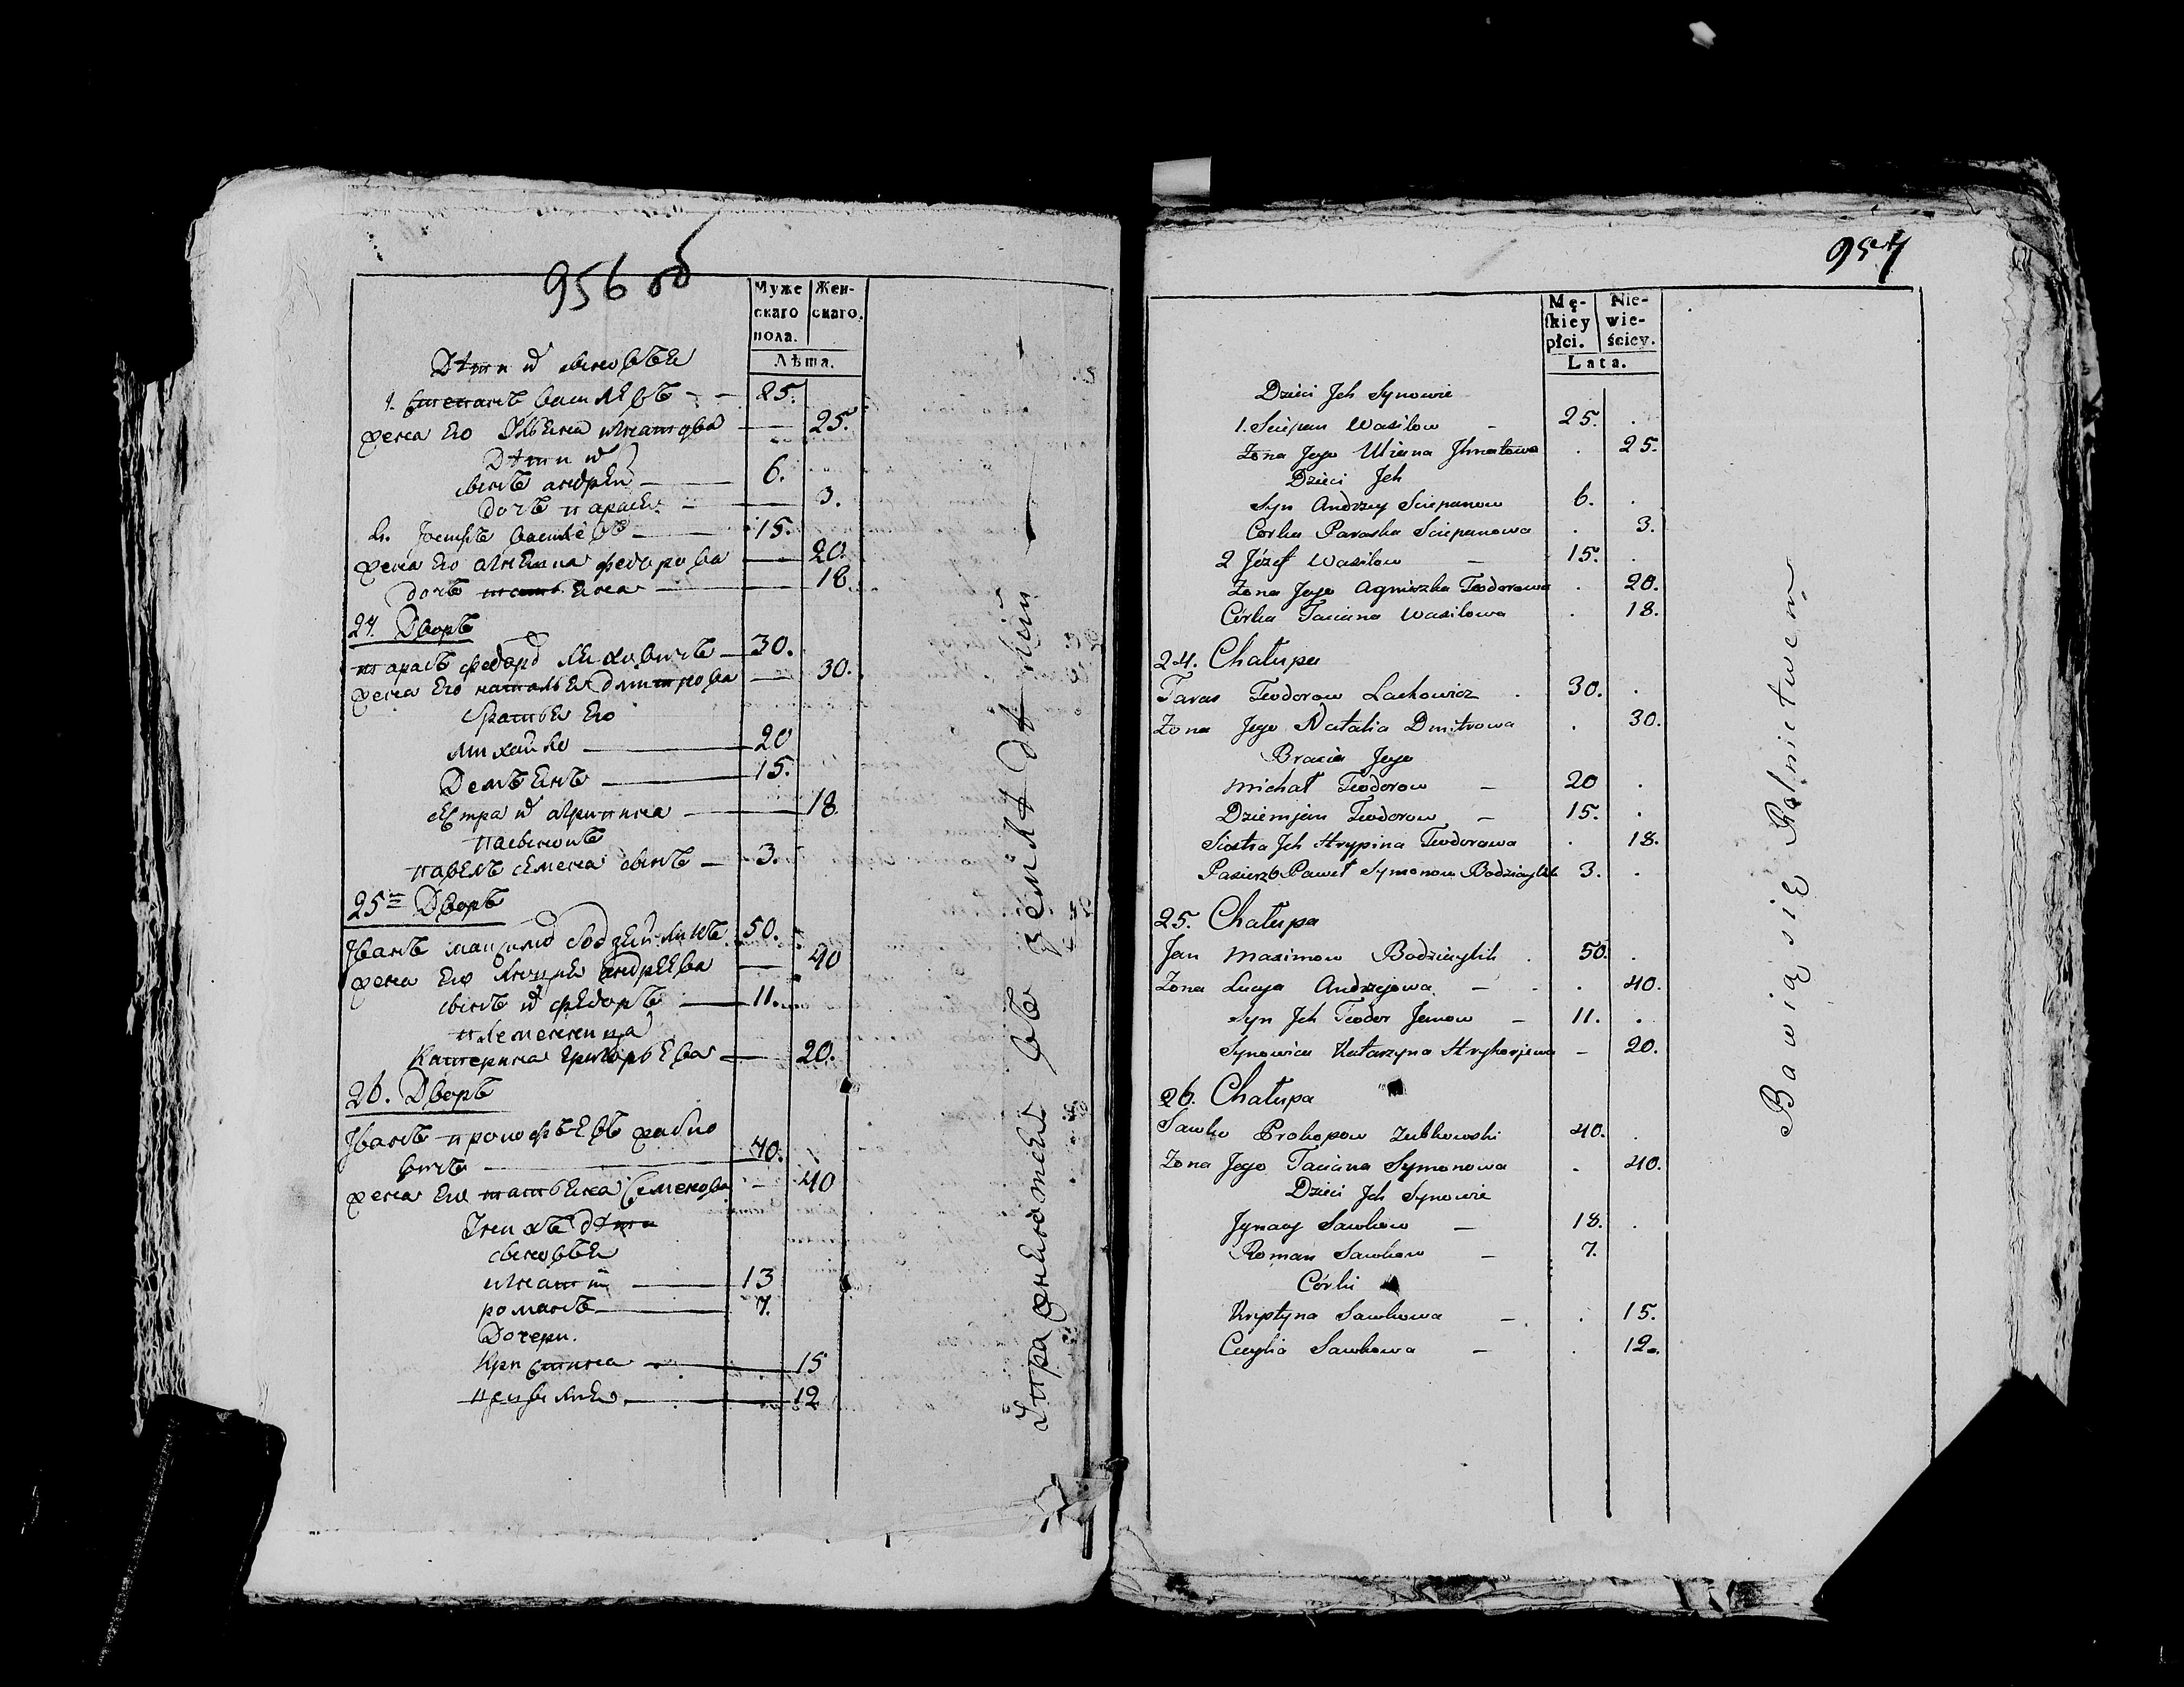 956 об
Муже
скаго
пола.
Жен-
скаго.
Лѣта.
Дѣти их сыновья
1. Степанъ васильевъ 25.
жена его Ульяна игнатова 25.
Дѣти их
сынъ андрей 6.
дочь параск: 3.
2. Іосифъ васильевъ 15.
жена его агнешка федорова 20.
дочь татьяна 18.
24. Дворъ
тарасъ федоров ляховичъ 30.
жена его наталья дмитрова 30.
братья его
михайло 20
Демьянъ 15.
сестра их агрипина 18
пасынокъ
павелъ семена сынъ 3.
25. Дворъ
Иванъ максимов бодзейликъ 50.
жена его люцыя андреева 40
сынъ их федоръ 11.
племенница
Катерина григорьева 20.
26. Дворъ
Иванъ прокофьевъ
вичъ 40.
жена его татьяна семенова 40
У них дѣти
сыновья
игнатий 13
романъ 7.
Дочери.
Кристина 15
12
Упражняются въ землѣдѣлии
957
Mę-
skiey
płci.
Nie-
wie-
ściey.
Lata.
Dzieci Jch Synowie
1. Sciepan Wasilow 25.
Zona Jego Uliana Jhnatowa 25.
Dzieci Jch
Syn Andrzey Sciepanow 6.
Corka Paraska Sciepanowa 3.
2 Józef Wasilow 15.
Zona Jego Agniszka Teodorowa 20.
Córka Taciana Wasilowa 18.
24. Chałupa
Taras Teodorow Lachowicz 30.
Zona Jego Natalia Dmitrowa 30.
Bracia Jego
Michał Teodorow 20
Dziemjan Teodorow 15.
Siostra Jch Hrypina Teodorowa 18.
Pasierzb Paweł Symonow Bodzieylik 3.
25. Chałupa
Jan Maximow Bodzieylik 50.
Zona Lucya Andrzejowa 40.
Syn Jch Teodor Janow 11.
Synowica Katarzyna Hryhorjewa 20.
26. Chałupa
Sawko Prokopow Zubkowski 40.
Zona Jego Taciana Symonowa 40.
Dzieci Jch Synowie
Jgnacy Sawkow 18.
Roman Sawkow 7.
Córki
Krystyna Sawkowa 15.
Cecylia Sawkowa 12.
Bawią się Rolnictwem